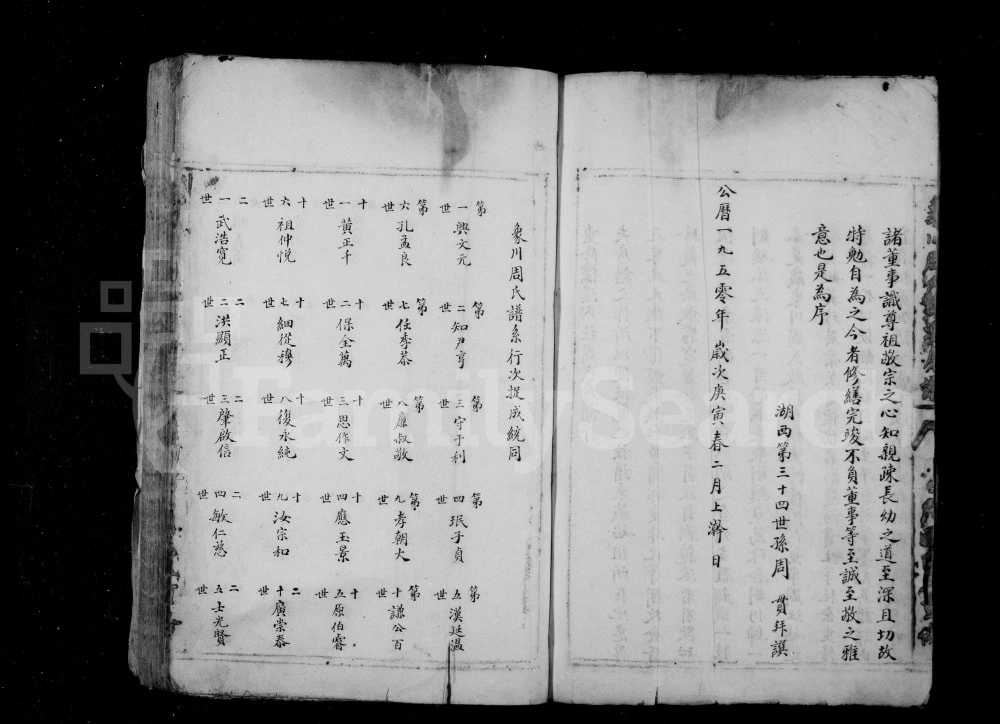 諸董事識尊祖敬宗之心知親疎長幼之道至深且切故
特勉自為之今者修繕完竣不負董事等至誠至敬之雅
意也是為序
湖西第三十四世孫周 貫拜譔
公曆一九五零年歲次庚寅春二月上澣日
象川周氏譜系行次提成統同
第一世 興文元
第二世 知尹亨
第三世 守于利
第四世 珉子貞
第五世 漢廷溫
第六世 孔孟良
第七世 任季恭
第八世 廉叔敬
第九世 孝朝大
第十世 謙公百
十一世 黃正千
十二世 保全萬
十三世 思作文
十四世 應玉景
十五世 原伯睿
十六世 祖仲悅
十七世 細從穆
十八世 復永純
十九世 汝宗和
二十世 廣崇泰
二一世 武浩寬
二二世 洪顯正
二三世 肇啟信
二四世 敏仁慈
二五世 士光賢
FamilySearch